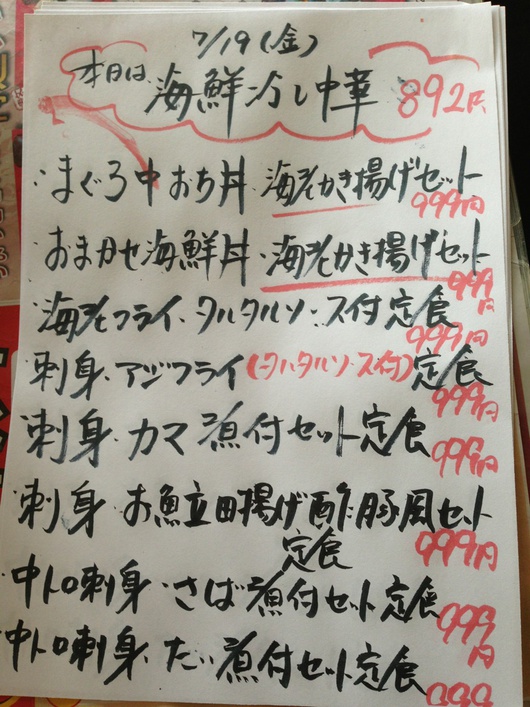 7/19(金)
本日は 海鮮冷し中華 892円
・まぐろ中おち丼・海老かき揚げセット 999円
おまかせ海鮮丼・海老かき揚げセット 999円
・海老フライ・タルタルソース付定食 999円
・刺身・アジフライ(タルタルソース付)定食 999円
・刺身・カマ煮付セット定食 999円
・刺身・お魚立田揚げ酢豚風セット
定食 999円
・中トロ刺身・さば煮付セット定食 999円
中トロ刺身・たい煮付セット定食 999